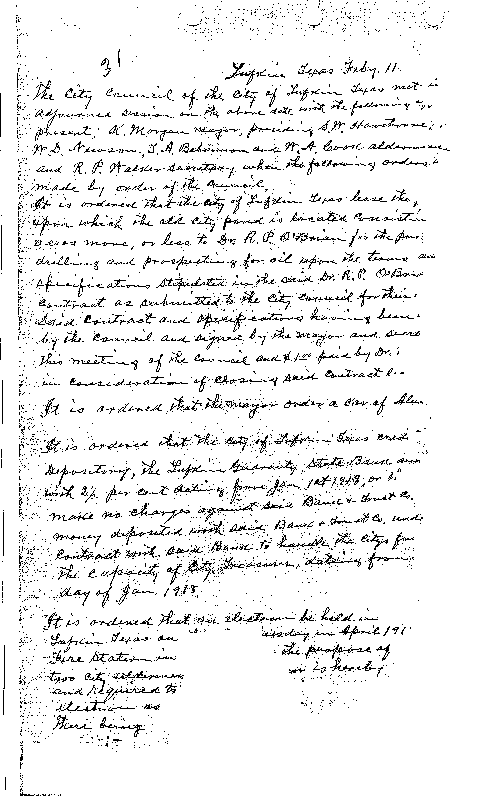 31
Lufkin Texas Feby. 11
The City Council of the City of Lufkin Texas met in
adjourned session on the above date with the following
present, K. Morgan mayor, presiding S.W. Hawthorne,
W.D. Newsom, and W.A. Cook aldermen
and R.P. Walker secretary when the following orders
made by order of the Council.
It is ordered that the City of Lufkin Texas lease the
upon which the old City pond is located
acres more, or less to Dr. R.P. O'Brian for the
drilling and prospecting for oil upon the terms
specifications stipulated in the said Dr. R.P.
contract as submitted to the City Council for their
said contract and specifications having been
by the Council and signed by the mayor and
this meeting of the Council and paid by Dr.
in consideration of closing said contract
It is ordered that the mayor order a car of
It is ordered that the City of Lufkin Texas
depositing, the Lufkin Guaranty State Bank
with 2½ per cent dating from Jan 1st 1918, or
make no charges against said Bank & Trust Co.
money deposited with said Bank & Trust Co. unde
contract with said Bank to handle the Citys
the capacity of City Treasurer, dating from
day of Jan 1918
It is ordered that an election be held in
Lufkin Texas on in April 191
Fire Station in the purpose of
two City aldermen is hereby
and required to
election
there being